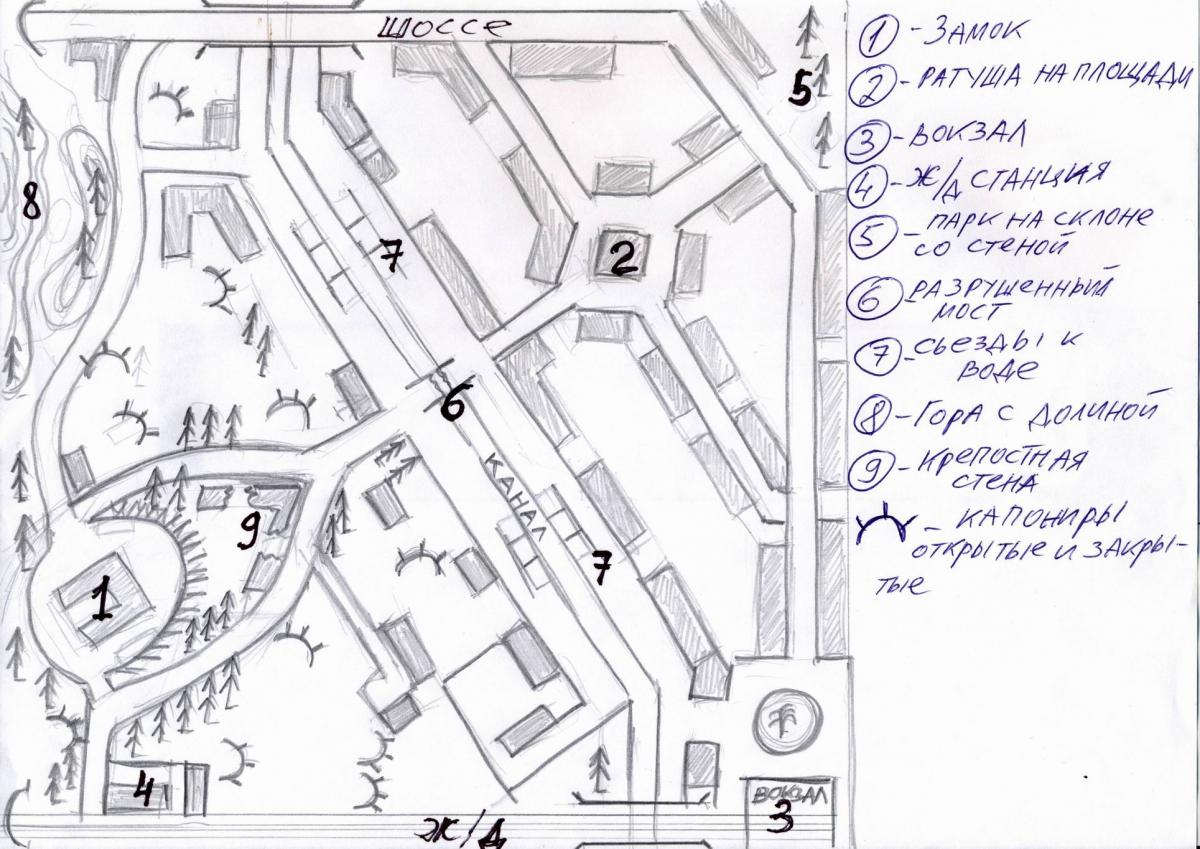 ШОССЕ
5
8
7
2
6
КАНАЛ
9
7
1
4
ВОКЗАЛ
3
Ж/Д
1 - ЗАМОК
2 - РАТУША НА ПЛОЩАДИ
3 - ВОКЗАЛ
4 - Ж/Д СТАНЦИЯ
5 - ПАРК НА СКЛОНЕ
СО СТЕНОЙ
6 - РАЗРУШЕННЫЙ
МОСТ
7 - СЬЕЗДЫ К
ВОДЕ
8 - ГОРА С ДОЛИНОЙ
9 - КРЕПОСТНАЯ
СТЕНА
- КАПОНИРЫ
ОТКРЫТЫЕ И ЗАКРЫ-
ТЫЕ